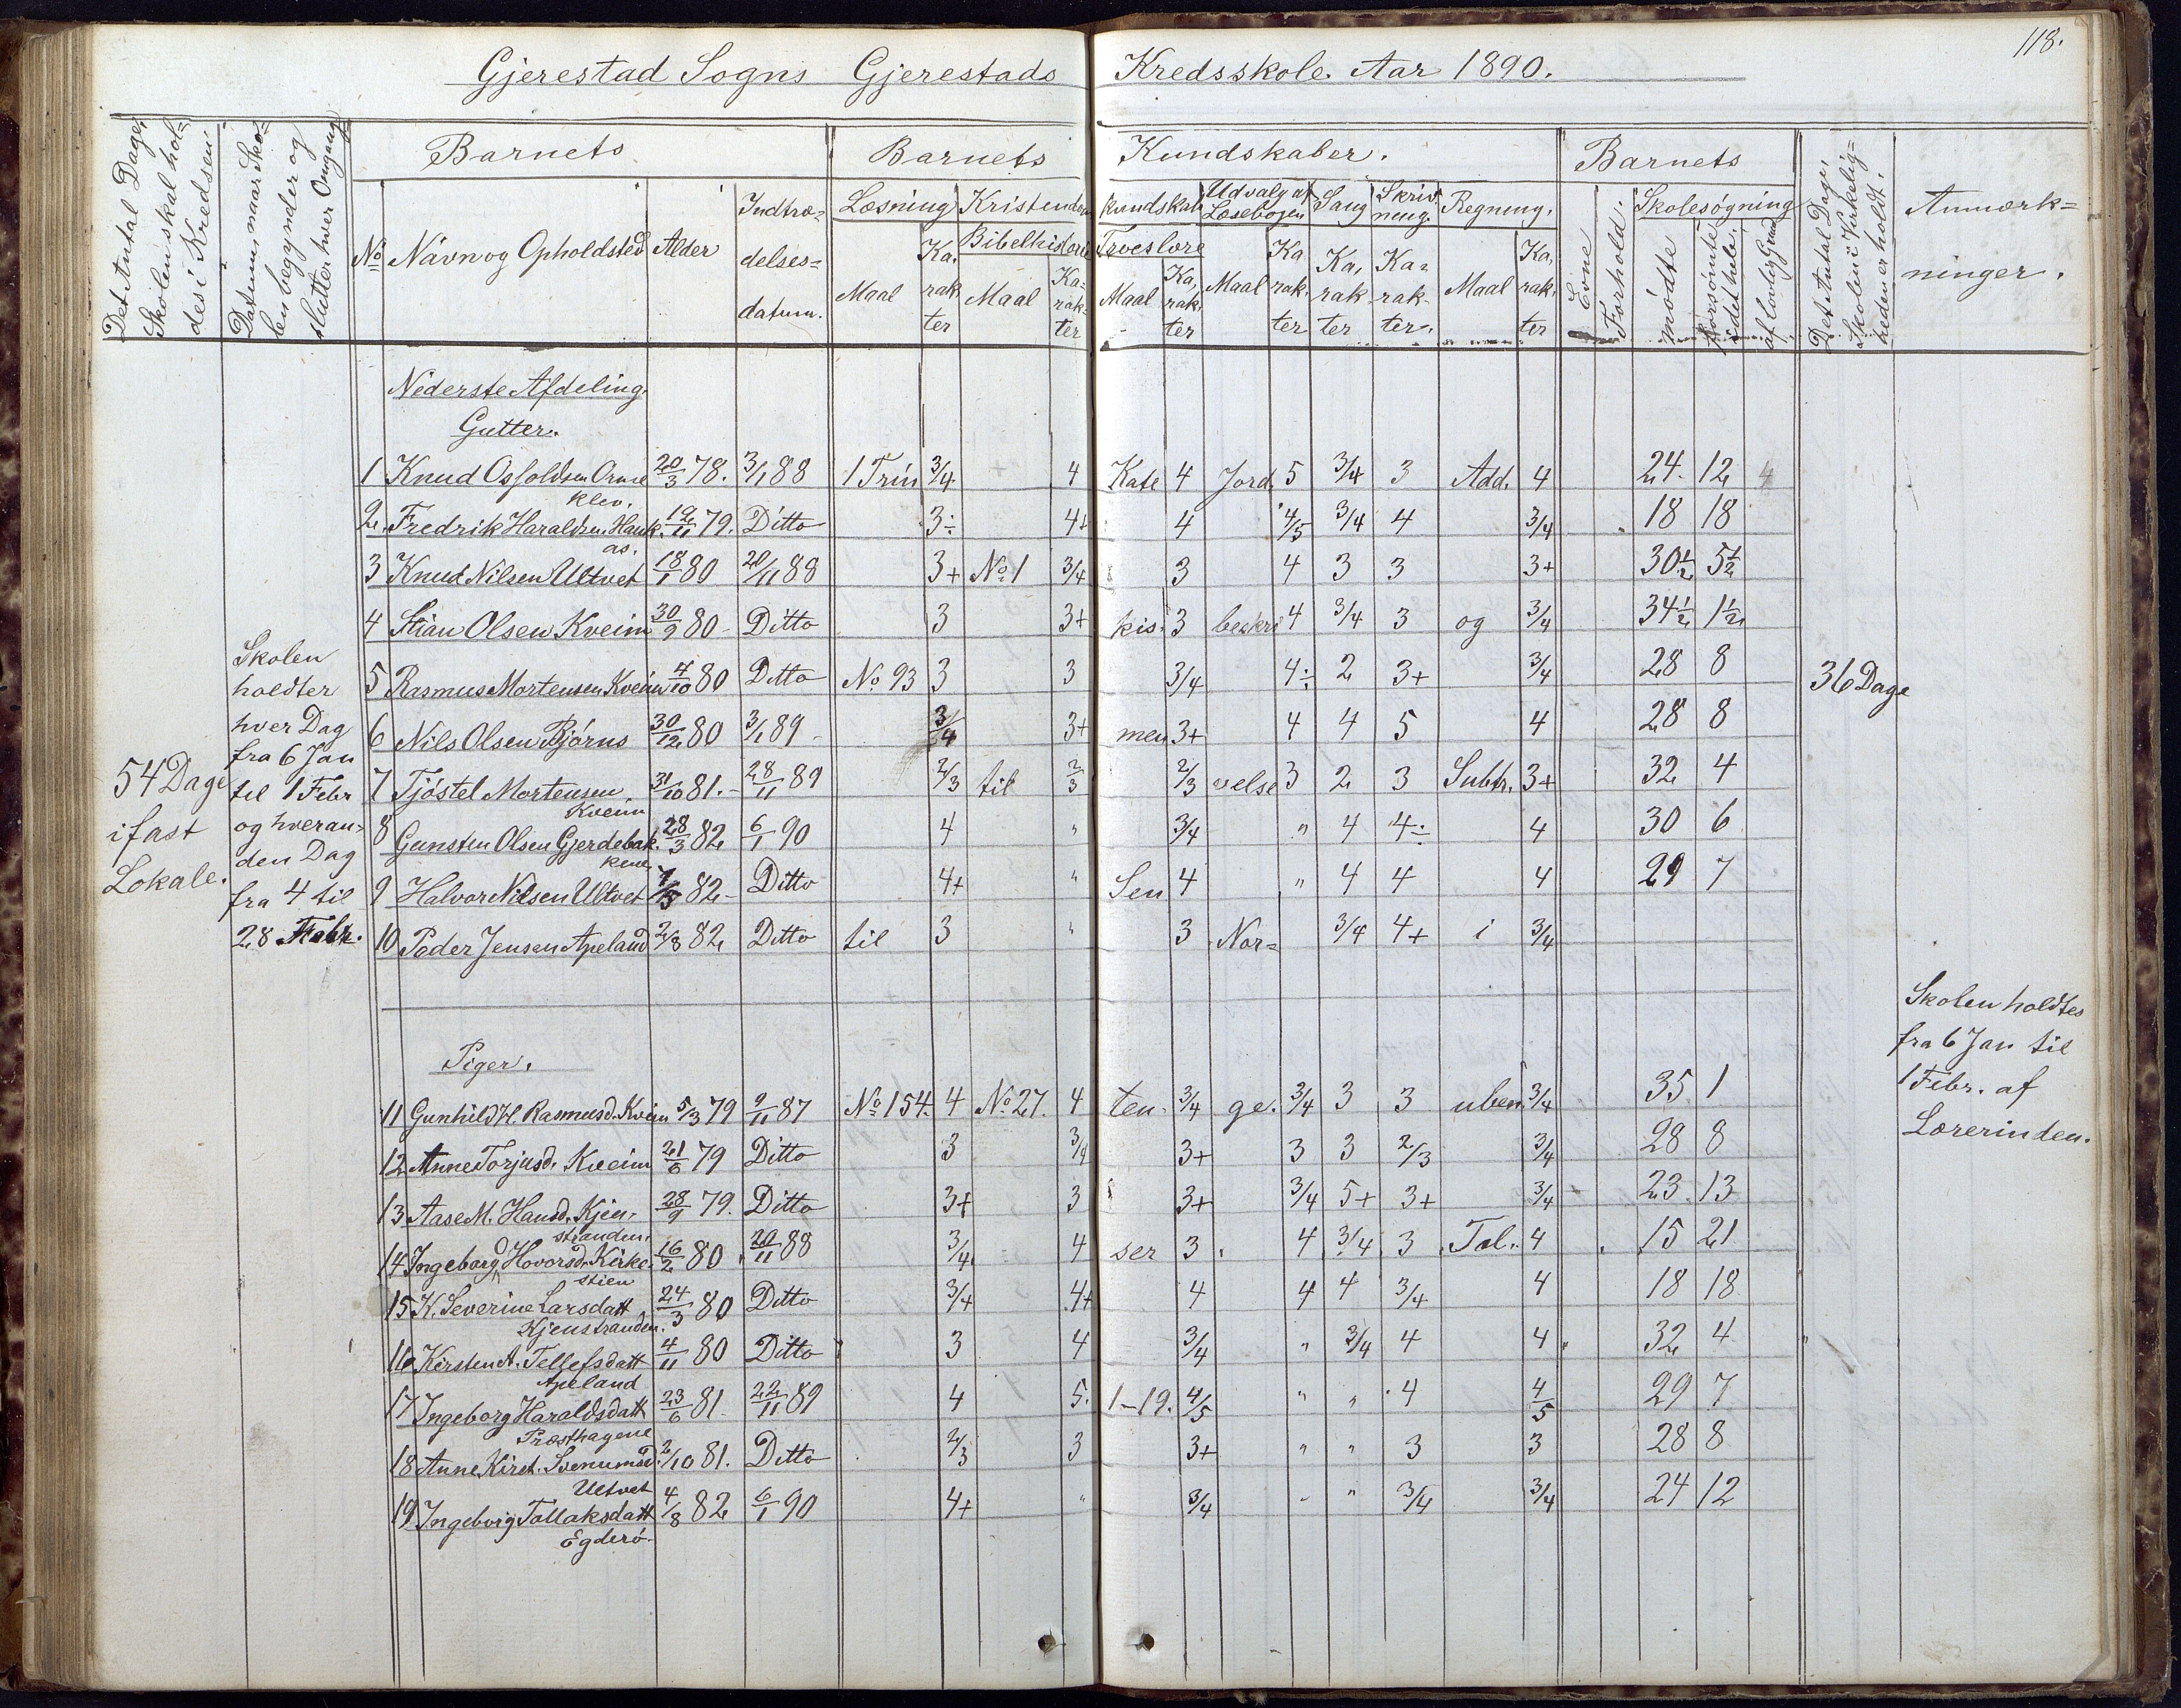 118.
Gjerestad Sogns Gjerestads Kredsskole. Aar 1890.
Det Antal Dage, Skolen skal holdes i Kredsen
Datum, naar Skolen begynder og slutter hver Omgang
Barnets
No Navn og Opholdsted Alder Indtrædelses= datum.
Barnets Kundskaber.
Læsning Kristendoms kundskab Udvalg af Læsebogen Sang Skrivning. Regning.
Bibelhistorie Troeslære
Maal Karakter Maal Karakter Maal Karakter Maal Karakter Karakter Karakter. Maal Karakter
Barnets
Evne Forhold. Skolesøgning
mødte forsømte i det hele, af lovlig Grund
Det Antal Dage, Skolen i Virkelig= heden er holdt.
Anmærk= ninger.
54 Dage i fast Lokale.
Skolen
holdter
hver Dag
fra 6 Jan
til 1 Febr
og hveran=
den Dag
fra 4 til
28 Febr.
Nederste Afdeling.
Gutter.
1 Knud Osfoldsen Orme klev. 20/3 78. 3/1 88 1 Trin 3/4 4 Kate 4 Jord 5 3/4 3 Add. 4 24 12 4
2. Fredrik Haraldsen Hauk as. 12/11 79. Ditto 3÷ 4+ 4 4/5 3/4 4 3/4 18 18
3 Knud Nilsen Ultvet 18/1 80 20/11 88 3+ No 1 3/4 3 4 3 3 3+ 30½ 5½
4 Stian Olsen Kveim 30/9 80 Ditto 3 3+ kis 3 beskri 4 3/4 3 og 3/4 34½ 1½
5 Rasmus Mortensen Kveim 4/10 80 Ditto No 93 3 3 3/4 4÷ 2 3+ 3/4 28 8 36 Dage
6 Nils Olsen Bjørns 30/12 80 3/1 89 3/4 3+ men 3+ 4 4 5 4 28 8
7 Tjøstel Mortensen Kveim 31/10 81. 28/11 89 2/3 til 2/3 2/3 velse 3 2 3 Subtr. 3+ 32 4
8 Gunsten Olsen Gjerdebak kene 28/3 82 6/1 90 4 " 3/4 " 4 4÷ 4 30 6
9 Halvor Nilsen Ultvet 1/5 82 Ditto 4+ " Sen 4 " 4 4 4 29 7
10 Peder Jensen Apeland 2/8 82 Ditto til 3 " 3 Nor= 3/4 4+ i 3/4
Piger.
11 Gunhild H. Rasmusd. Kveim 5/3 79 9/11 87 No 154. 4 No 27. 4 ten. 3/4 ge. 3/4 3 3 uben. 3/4 35 1
12 Anne Torjusd. Kveim 21/6 79 Ditto 3 3/4 3+ 3 3 2/3 3/4 28 8
13 Aase M. Hansd. Kjen= stranden. 28/9 79. Ditto 3+ 3 3+ 3/4 5+ 3+ 3/4 23 13
14 Ingeborg Hovorsd. Kirke= stien 16/2 80 20/11 88 3/4 4 ser 3 4 3/4 3 Tal. 4 15 21
15 K. Severine Larsdatt Kjenstranden. 24/3 80 Ditto 3/4 4+ 4 4 4 3/4 4 18 18
16 Kirsten A. Tellefsdatt Apeland 4/11 80 Ditto 3 4 3/4 " 3/4 4 4 32 4
17 Ingeborg Haraldsdatt Præsthagene 23/6 81 22/11 89 4 5. 1-19. 4/5 " " 4 4/5 29 7
18 Anne Kirst. Svenumsd. Ultvet 2/10 81. Ditto 2/3 3 3+ " " 3 3 28 8
19 Ingebvig Tallaksdatt Egderø. 4/8 82 6/1 90 4+ " 3/4 " " 3/4 3/4 24 12
Skolen holdtes
fra 6 Jan til
1 Febr. af
Lærerinden.